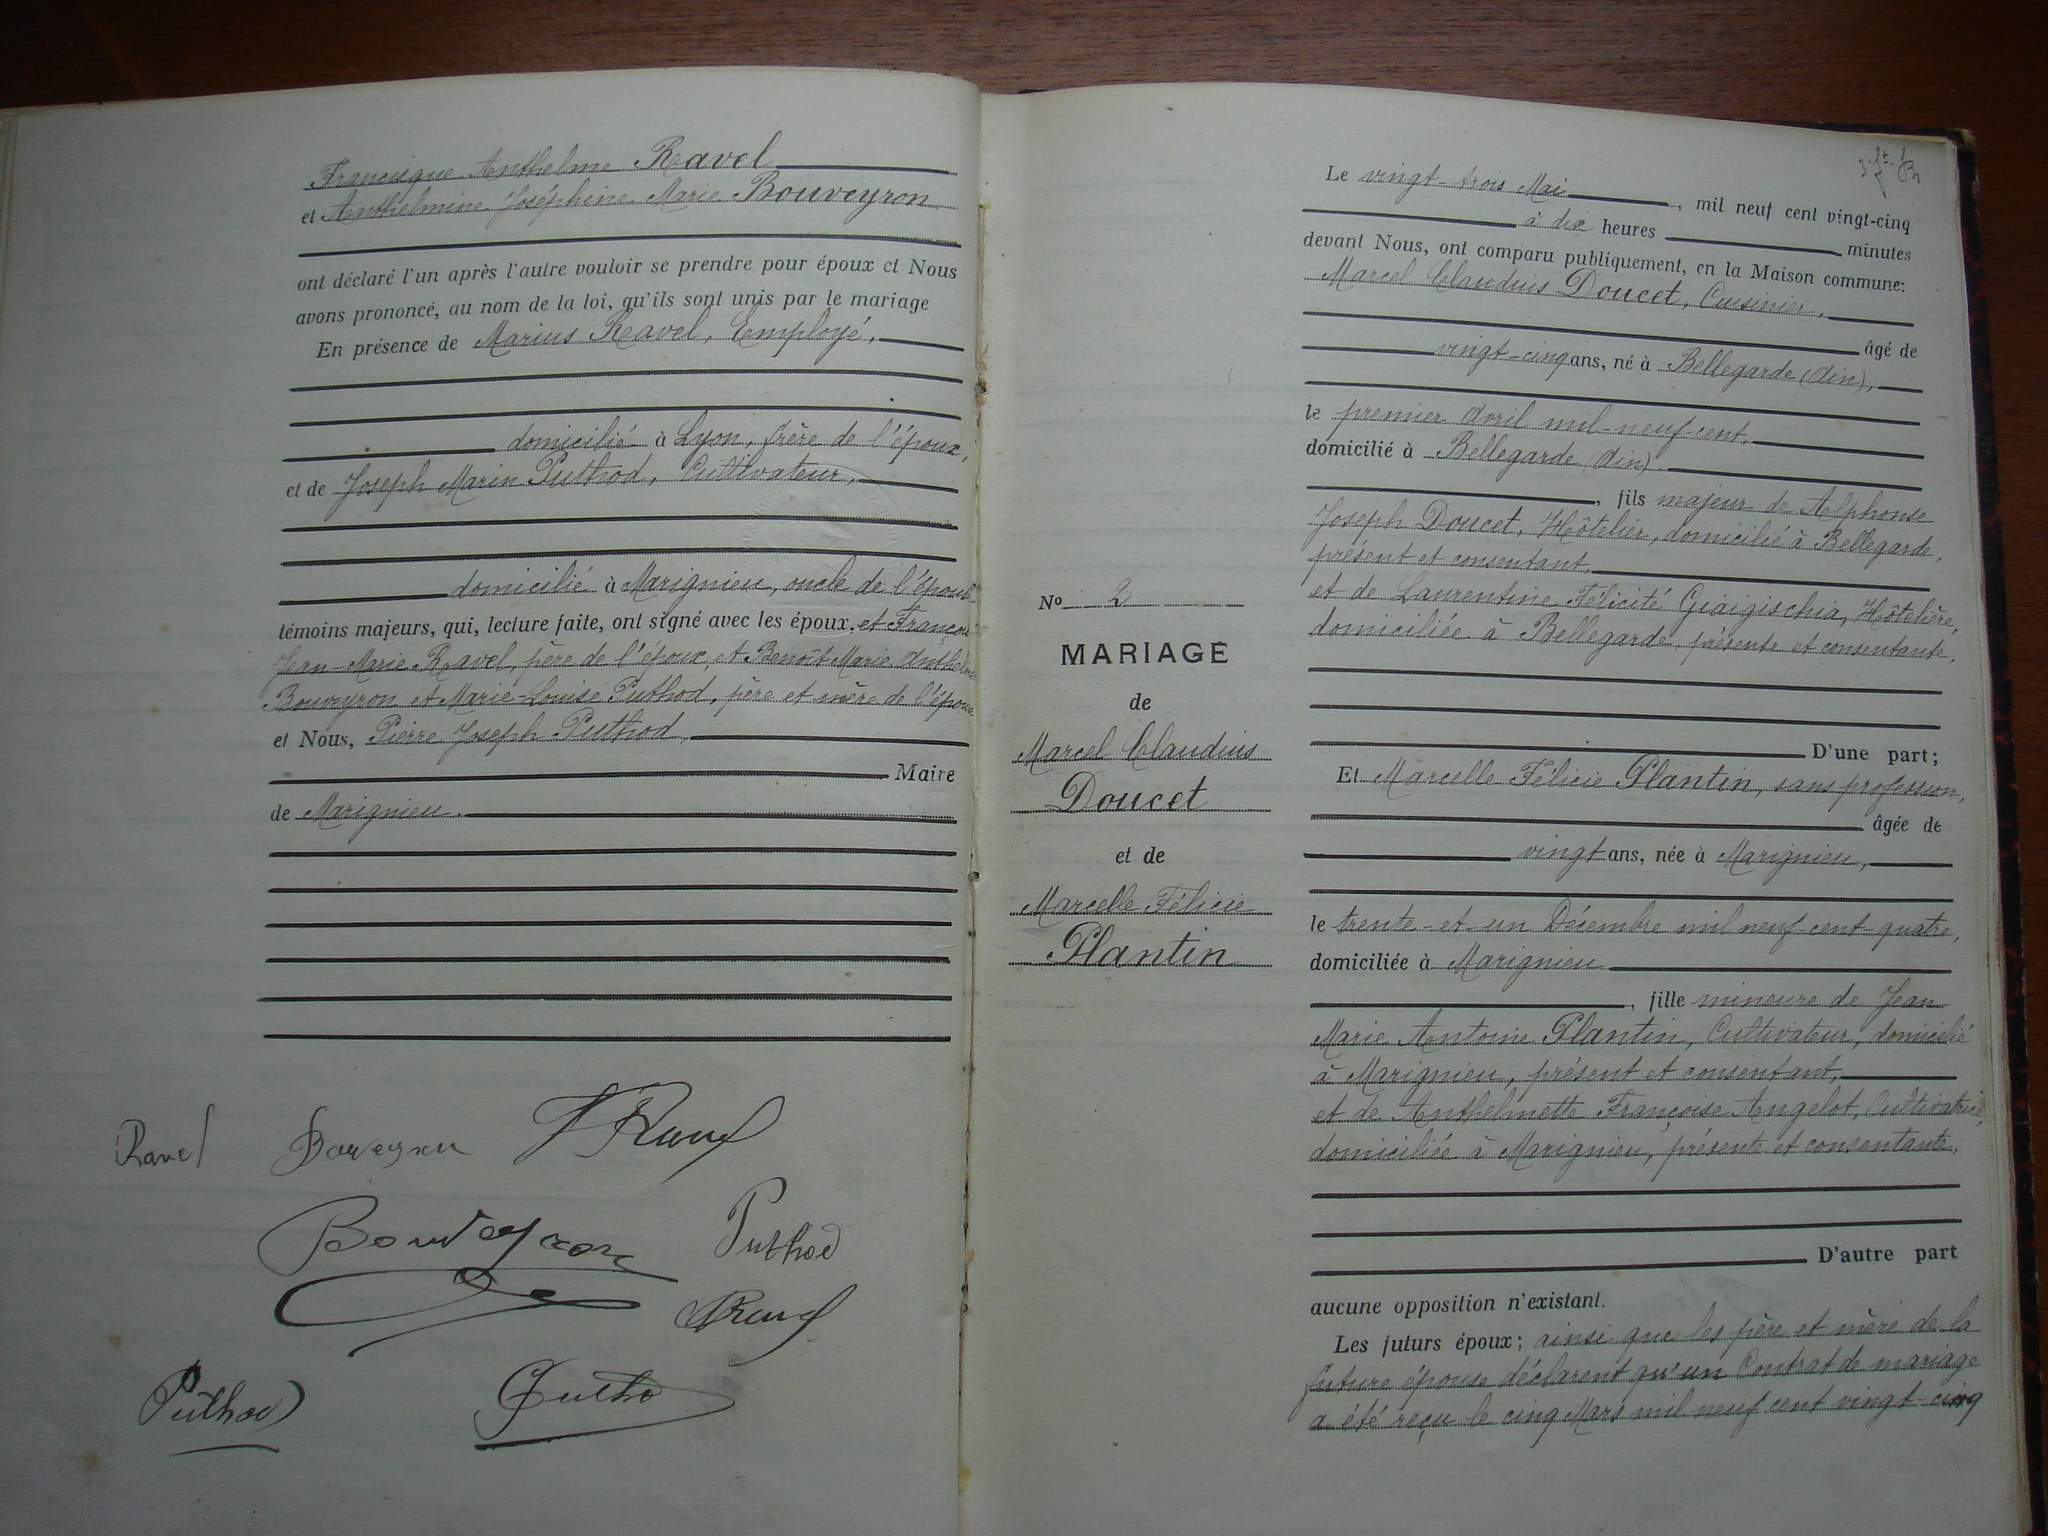 Francisque Anthelme Ravel
et Anthelmine Joséphine Marie Bouveyron
ont déclaré l'un après l'autre vouloir se prendre pour époux et Nous
avons prononcé, au nom de la loi, qu'ils sont unis par le mariage
En présence de Marius Ravel, Employé,
domicilié à Lyon, frère de l'époux,
et de Joseph Marin Puthod, Cultivateur,
domicilié à Marignieu, oncle de l'épouse
témoins majeurs, qui, lecture faite, ont signé avec les époux, et François
Jean-Marie Ravel, père de l'époux, et Benoît Marie Anthelme
Bouveyron et Marie-Louise Puthod, père et mère de l'épouse
et Nous, Pierre Joseph Puthod,
Maire
de Marignieu.
Ravel Bouveyron Ravel
Bouveyron Puthod
Ravel
Puthod Putho
No 2
MARIAGE
de
Marcel Claudius
Doucet
et de
Marcelle Félicie
Plantin
Le vingt-trois Mai, mil neuf cent vingt-cinq
à dix heures minutes
devant Nous, ont comparu publiquement, en la Maison commune:
Marcel Claudius Doucet, Cuisinier,
âgé de
vingt-cinq ans, né à Bellegarde (Ain),
le premier Avril mil-neuf-cent,
domicilié à Bellegarde (Ain).
, fils majeur de Alphonse
Joseph Doucet, Hôtelier, domicilié à Bellegarde,
présent et consentant,
et de Laurentine Félicité Giaigischia, Hôtelière,
domiciliée à Bellegarde, présente et consentante,
D'une part;
Et Marcelle Félicie Plantin, sans profession,
âgée de
vingt ans, née à Marignieu,
le trente-et-un Décembre mil neuf-cent-quatre,
domiciliée à Marignieu
, fille mineure de Jean
Marie Antoine Plantin, Cultivateur, domicilié
à Marignieu, présent et consentant,
et de Anthelmette Françoise Angelot, Cultivatrice,
domiciliée à Marignieu, présente et consentante,
D'autre part
aucune opposition n'existant.
Les futurs époux; ainsi que les père et mère de la
future épouse déclarent qu'un Contrat de mariage
a été reçu le cinq Mars mil neuf cent vingt-cinq